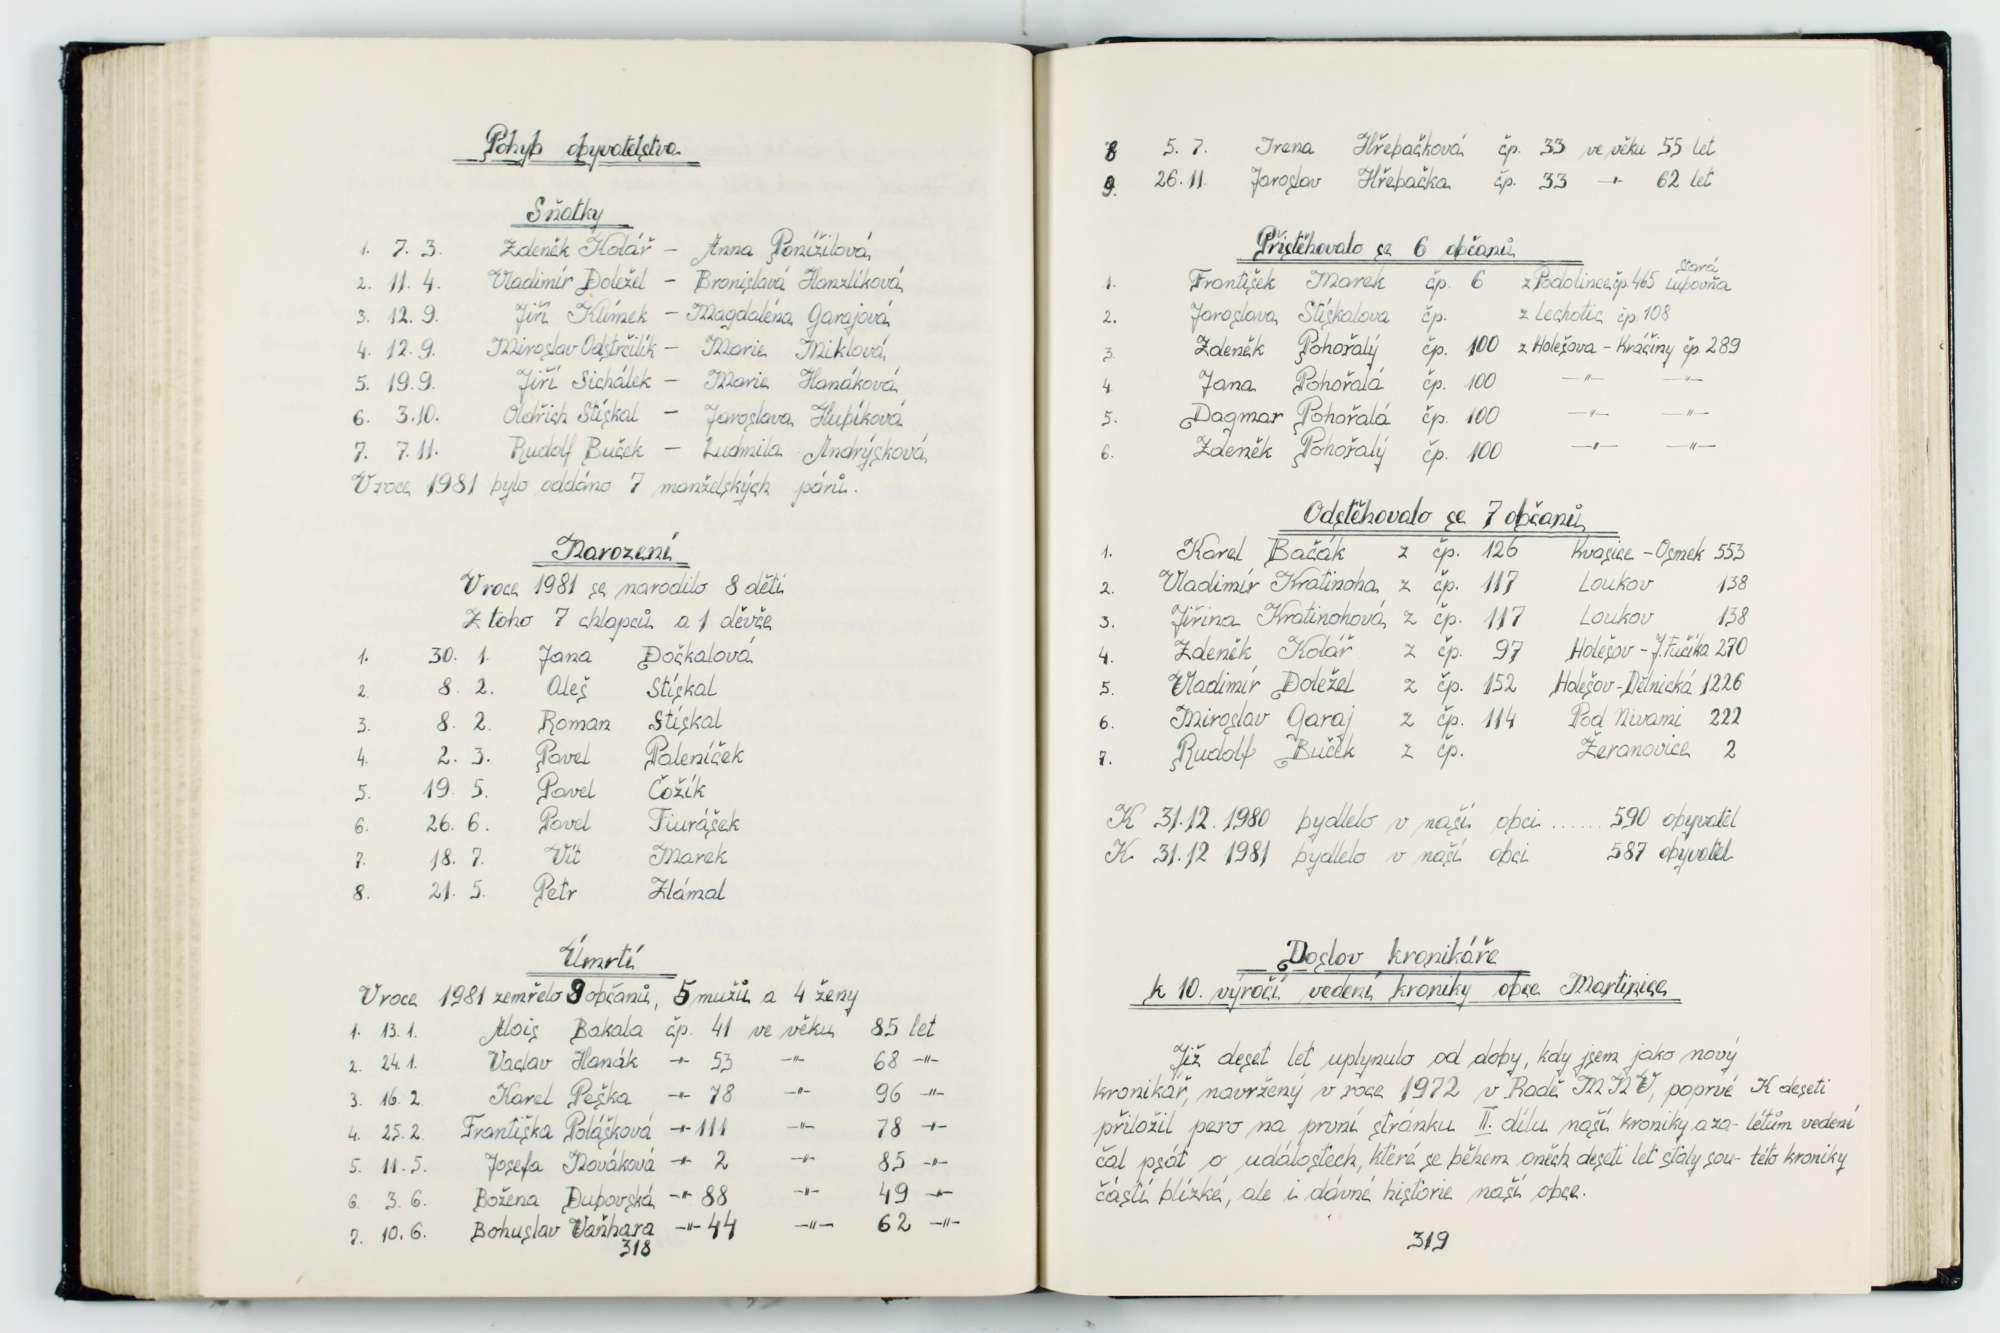 Pohyb obyvatelstva
Sňatky
1. 7. 3. Zdeněk Kolář – Anna Ponížilová
2. 11. 4. Vladimír Doležel – Bronislavá Hanzlíková
3. 12. 9. Jiří Klímek – Magdaléna Garajová
4. 12. 9. Miroslav Odstrčilík – Marie Miklová
5. 19. 9. Jiří Sichálek – Marie Hanáková
6. 3. 10. Oldřich Stískal – Jaroslava Hubíková
7. 7. 11. Rudolf Buček – Ludmila Andrýsková
V roce 1981 bylo oddáno 7 manželských párů.
Narození
V roce 1981 se narodilo 8 dětí
Z toho 7 chlapců a 1 děvče
1. 30. 1. Jana Dočkalová
2. 8. 2. Aleš Stískal
3. 8. 2. Roman Stískal
4. 2. 3. Pavel Paleníček
5. 19. 5. Pavel Čožík
6. 26. 6. Pavel Fiurášek
7. 18. 7. Vít Marek
8. 21. 5. Petr Zlámal
Úmrtí
V roce 1981 zemřelo 9 občanů, 5 mužů a 4 ženy
1. 13. 1. Alois Bakala čp. 41 ve věku 85 let
2. 24. 1. Vaclav Hanák -"- 53 -"- 68 -"-
3. 16. 2. Karel Peška -"- 78 -"- 96 -"-
4. 25. 2. Františka Polášková -"- 111 -"- 78 -"-
5. 11. 5. Josefa Nováková -"- 2 -"- 85 -"-
6. 3. 6. Božena Dubovská -"- 88 -"- 49 -"-
7. 10. 6. Bohuslav Vaňhara -"- 44 -"- 62 -"-
318
8 5. 7. Irena Hřebačková čp. 33 ve věku 55 let
9. 26. 11. Jaroslav Hřebačka čp. 33 -"- 62 let
Přistěhovalo se 6 občanů
1. František Marek čp. 6 z Podolince čp. 465 Stará Lubovňa
2. Jaroslava Stískalova čp. z Lechotic čp 108
3. Zdeněk Pohořalý čp. 100 z Holešova – Kráčiny čp 289
4. Jana Pohořalá čp. 100 -"- -"-
5. Dagmar Pohořalá čp. 100 -"- -"-
6. Zdeněk Pohořalý čp. 100 -"- -"-
Odstěhovalo se 7 občanů
1. Karel Bačák z čp. 126 Kvasice – Osmek 553
2. Vladimír Kratinoha z čp. 117 Loukov 138
3. Jiřina Kratinohová z čp. 117 Loukov 138
4. Zdeněk Kolář z čp. 97 Holešov – J. Fučíka 270
5. Vladimír Doležel z čp. 152 Holešov – Dělnická 1226
6. Miroslav Garaj z čp. 114 Pod Nivami 222
7. Rudolf Buček z čp. Žeranovice 2
K 31. 12. 1980 bydlelo v naší obci ...... 590 obyvatel
K 31. 12 1981 bydlelo v naší obci 587 obyvatel
Doslov kronikáře
k 10. výročí vedení kroniky obce Martinice
Již deset let uplynulo od doby, kdy jsem jako nový
kronikář, navržený v roce 1972 v Radě MNV, poprvé
přiložil pero na první stránku II. dílu naší kroniky a za-
čal psát o událostech, které se během oněch deseti let staly sou-
částí blízké, ale i dávné historie naší obce.
K deseti
létům vedení
této kroniky
319